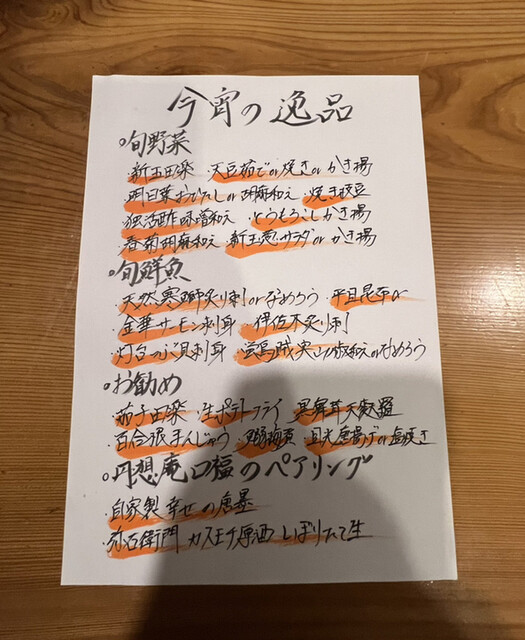 今宵の逸品
旬野菜
・新玉田楽 ・天豆茹でor焼きorかき揚
・明日葉おひたしor胡麻和え ・焼き枝豆
・独活酢味噌和え ・とうもろこしかき揚
・春菊胡麻和え ・新玉葱サラダorかき揚
旬鮮魚
・天然寒鰤炙り刺orなめろう ・平目昆布〆
・金華サーモン刺身 ・伊佐木炙り刺
・灯台つぶ貝刺身 ・蛍烏賊 和えorなめろう
お勧め
・茄子田楽 ・生ポテトフライ ・黒舞茸天麩羅
・百合根まんじゅう ・ 目光唐揚げor塩焼き
円想庵口福のペアリング
・自家製幸せの唐墨
・弥右衛門 カスモチ原酒 しぼりたて生